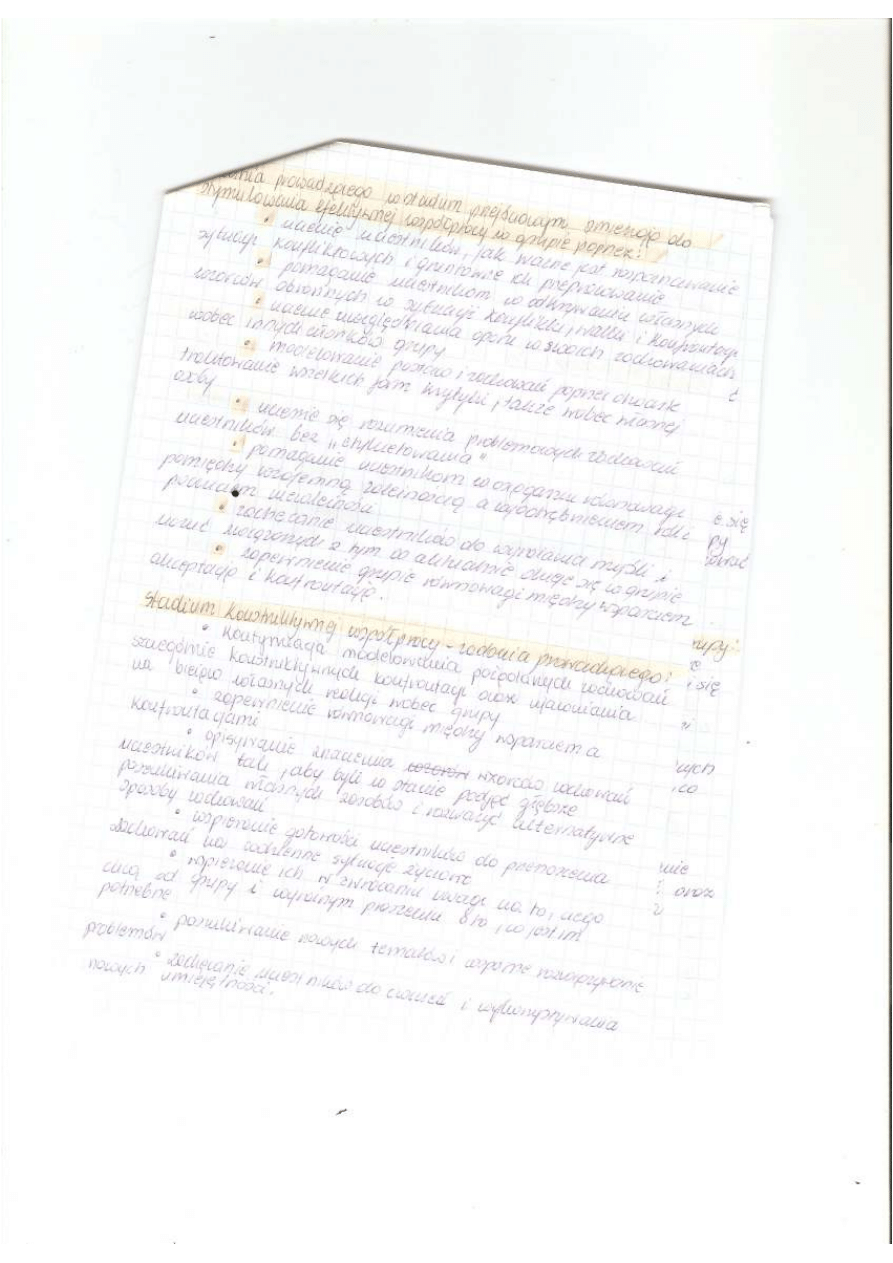 prowadzącego w stadium przejściowym zmierzają do
stymulowania efektywnej współpracy w grupie poprzez:
• uczenie uczestników, jak ważne jest rozpoznawanie
sytuacji konfliktowych i gruntowne ich przepracowanie
• pomaganie uczestnikom w odkrywaniu własnych
wzorców obronnych w sytuacji konfliktu, walki i konfrontacji
• uczenie uwzględniania oporu w swoich zachowaniach
wobec innych członków grupy
• modelowanie postaw i zachowań poprzez otwarte
traktowanie wszelkich form krytyki, także wobec własnej
osoby
• uczenie się rozumienia problemowych zachowań
uczestników bez „etykietowania”
• pomaganie uczestnikom w osiąganiu równowagi
pomiędzy wzajemną zależnością a wyodrębnieniem
poczuciem
• zachęcanie uczestników do wyrażania myśli i
uczuć związanych z tym co aktualnie dzieje się w grupie
• zapewnienie grupie równowagi między wsparciem
akceptacją i konfrontacją.
Stadium konstruktywnej współpracy - zadania prowadzącego:
• kontynuacja modelowania pożądanych zachowań
szczególnie konstruktywnych konfrontacji oraz ujawniania
na bieżąco własnych reakcji wobec grupy
• zapewnienie równowagi między wsparciem a
konfrontacjami
• opisywanie znaczenia wzorców zachowań
uczestników tak, aby byli w stanie podjąć głębsze
poszukiwania własnych zasobów i rozważyć alternatywne
sposoby zachowań
• wspieranie gotowości uczestników do przenoszenia
zachowań na codzienne sytuacje życiowe
• wspieranie ich w zwracaniu uwagi na to, czego
chcą od grupy i wyraźnym proszeniu o to, co jest im
potrzebne
• poszukiwanie nowych tematów i wspólne rozwiązywanie
problemów
• zachęcanie uczestników do ćwiczeń i wykorzystywania
nowych umiejętności.